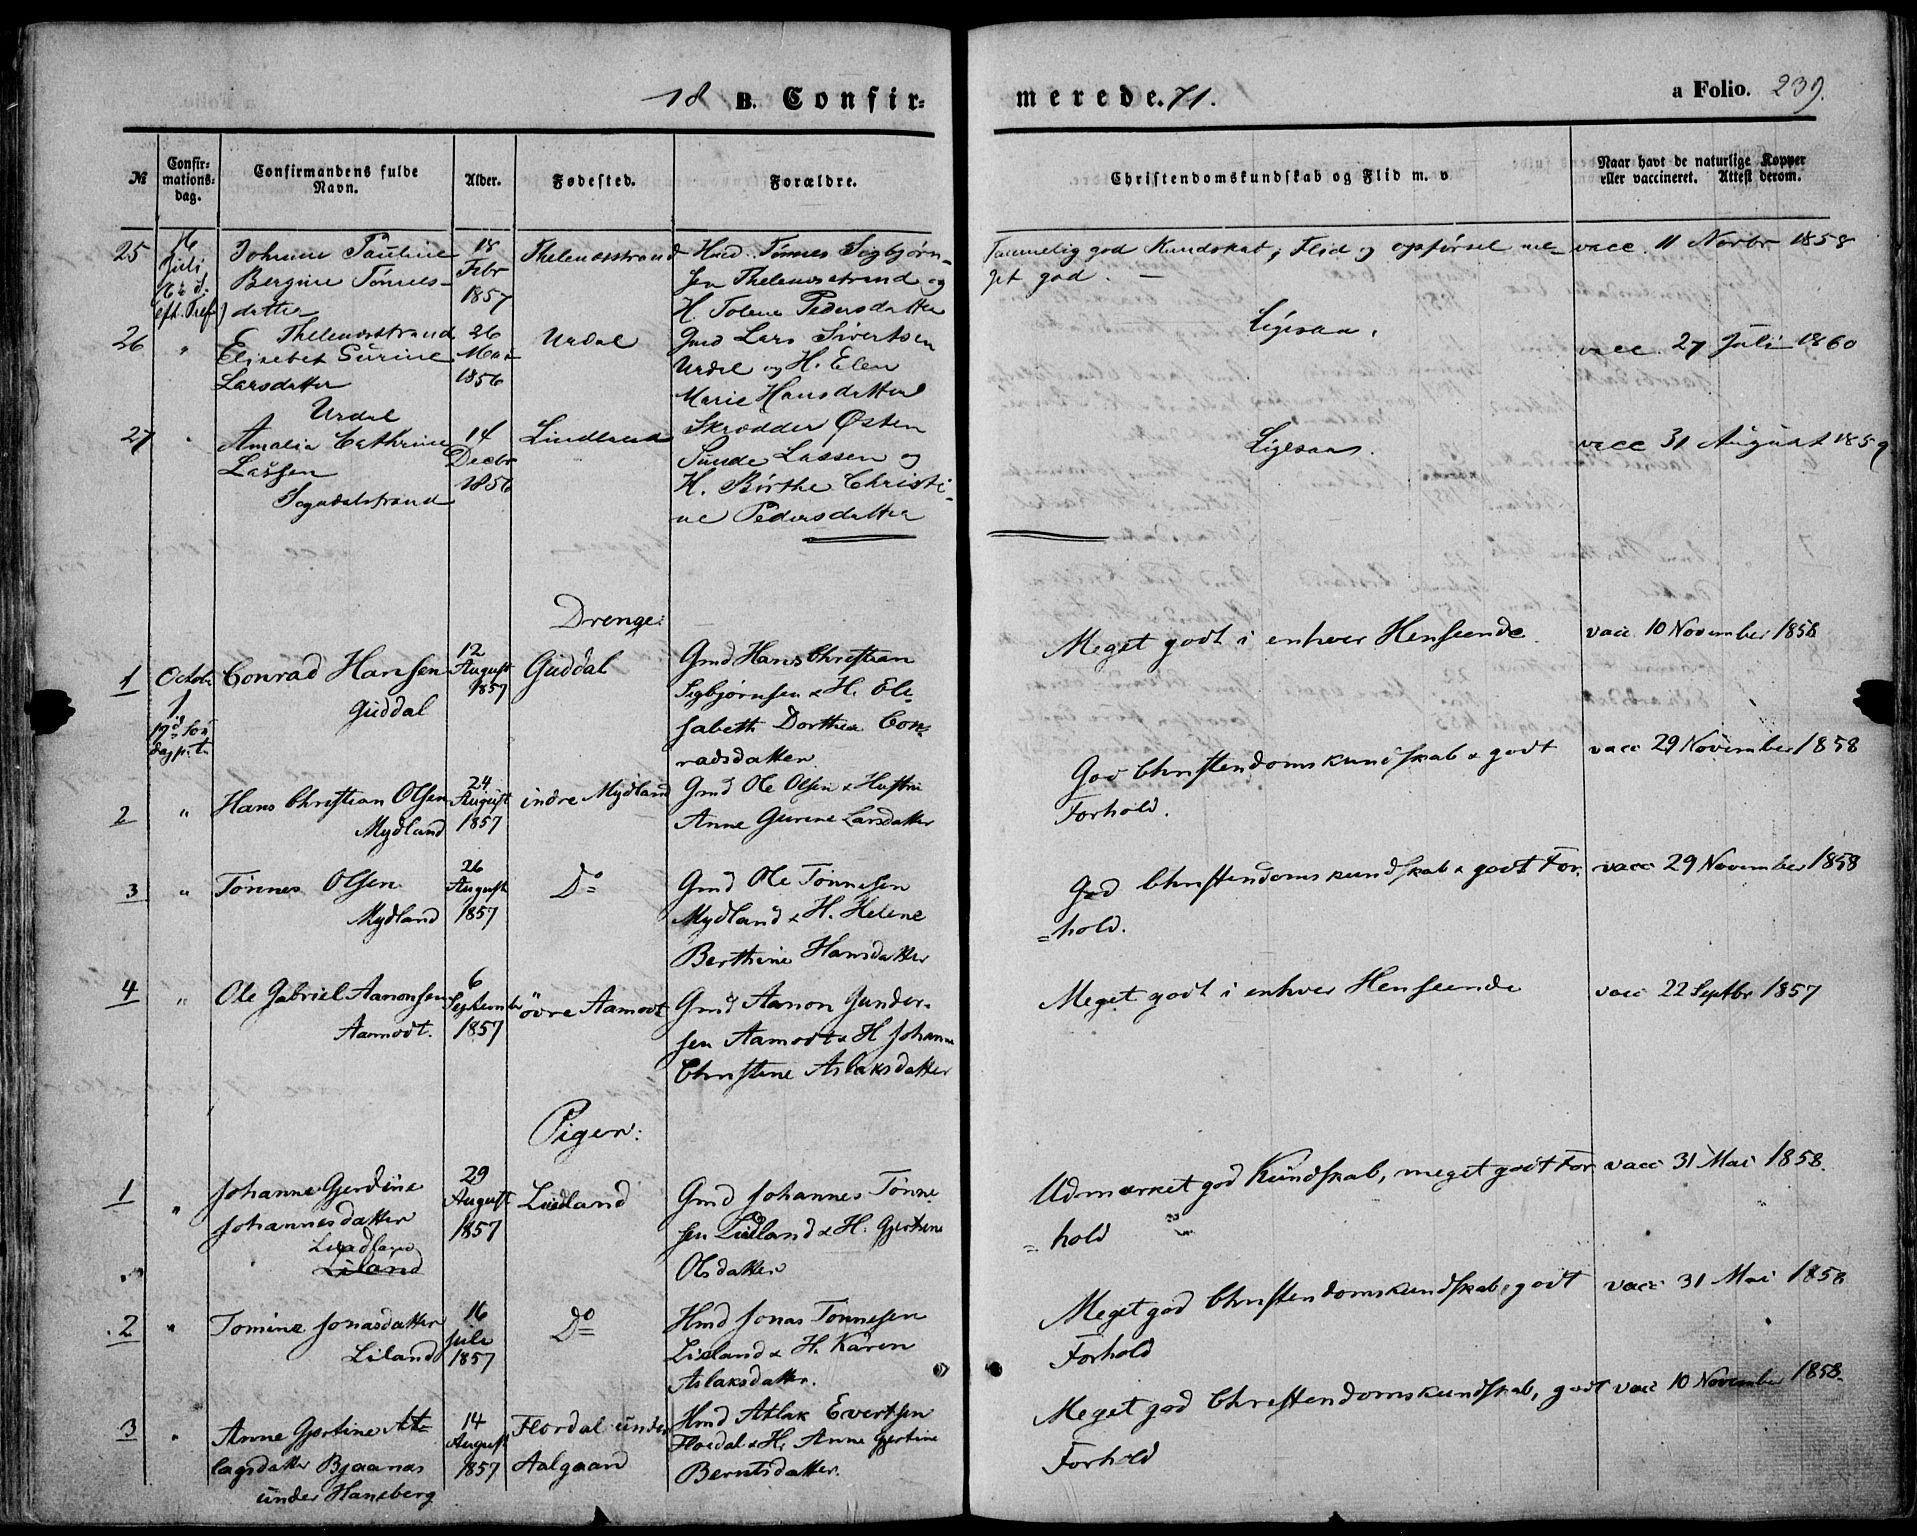 18 B. Confir= merede. 71. a Folio. 239.
№ Confir= mations= dag. Confirmandens fulde Navn. Alder. Fødested. Forældre. Christendomskundskab og Flid m. v Naar havt de naturlige Kopper eller vaccineret. Attest derom.
25 16 Johnine Pauline 18 Thelenesstrand Hmd. Tønnes Sigbjørn- Taammelig god Kundskab, Flid og opførsel me- vacc. 11 Novbr 1858
Juli Bergine Tønnes- Febr sen Thelenesstrand og get god. —
datter 1857 H. Tolene Pedersdatter
Thelenesstrand
26 " Elisabet Surine 26 Urdal Gmd Lars Sivertsen Ligesaa. vacc. 27 Juli 1860
Larsdatter Mai Urdal og H. Elen
Urdal 1856 Marie Hansdatter
27 " Amalia Cathrine 14 Lindland Skrædder Østen Ligesaa. vacc 31 August 1859
Lassen Decbr Sunde Lassen og
Sogndalstrand 1856 H. Birthe Christi-
ne Pedersdatter
Drenge:
1 Octobr Conrad Hansen 12 Guddal Gmd Hans Christian Meget godt i enhver Henseende. vacc. 10 November 1858
1 Guddal August Sigbjørnsen & H. Eli
1857 sabeth Dorthea Con=
radsdatter.
2 " Hans Christian Olsen 24 indre Mydland Gmd Ole Olsen & Hustru God Christendomskundskab & godt vacc 29 November 1858
Mydland August Anne Gurine Larsdatter Forhold.
1857
3 " Tønnes Olsen 26 Do Gmd Ole Tønnesen God Christendomskundskab & godt For. vacc 29 November 1858
Mydland August Mydland & H. Helene =hold.
1857 Berthine Hansdatter
4 " Ole Gabriel Aanonsen 6 övre Aamodt Gmd Aanon Gunder= Meget godt i enhver Henseende vacc 22 Septbr 1857
Aamodt. September sen Aamodt & H Johanne
1857 Christine Aslaksdatter
Pigen:
1 " Johanne Gjerdine 29 Liedland Gmd Johannes Tønne Udmærket god Kundskab, meget godt For vacc 31 Mai 1858.
Johannesdatter August sen Liedland & H. Gjertine =hold
Liedland 1857 Olsdatter
Liland
2 " Tomine Jonasdatter 16 Do Hmd Jonas Tønnesen Meget god Christendomskundskab, godt vacc 31 Mai 1858
Liland Juli Lieland & H. Karen Forhold
1857 Aslaksdatter.
3 " Anne Gjertine At= 14 Flordal under Hmd Atlak Evertsen Meget god Christendomskundskab, godt vacc 10 November 1858.
lagsdatter Bjaanas August Aalgaard Flordal & H. Anne Gjertine Forhold
under Haneberg 1857 Berntsdatter.